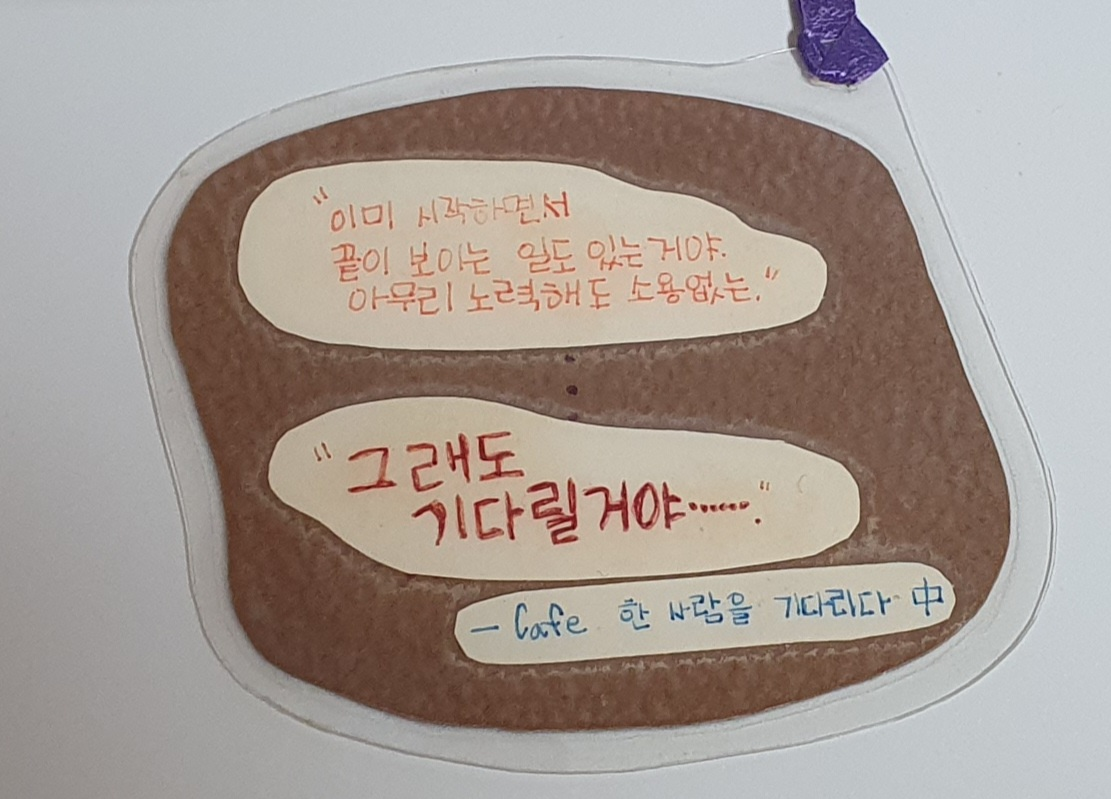 "이미 시작하면서
끝이 보이는 일도 있는거야.
아무리 노력해도 소용없는."
"그래도
기다릴거야……."
- Cafe 한 사람을 기다리다 中